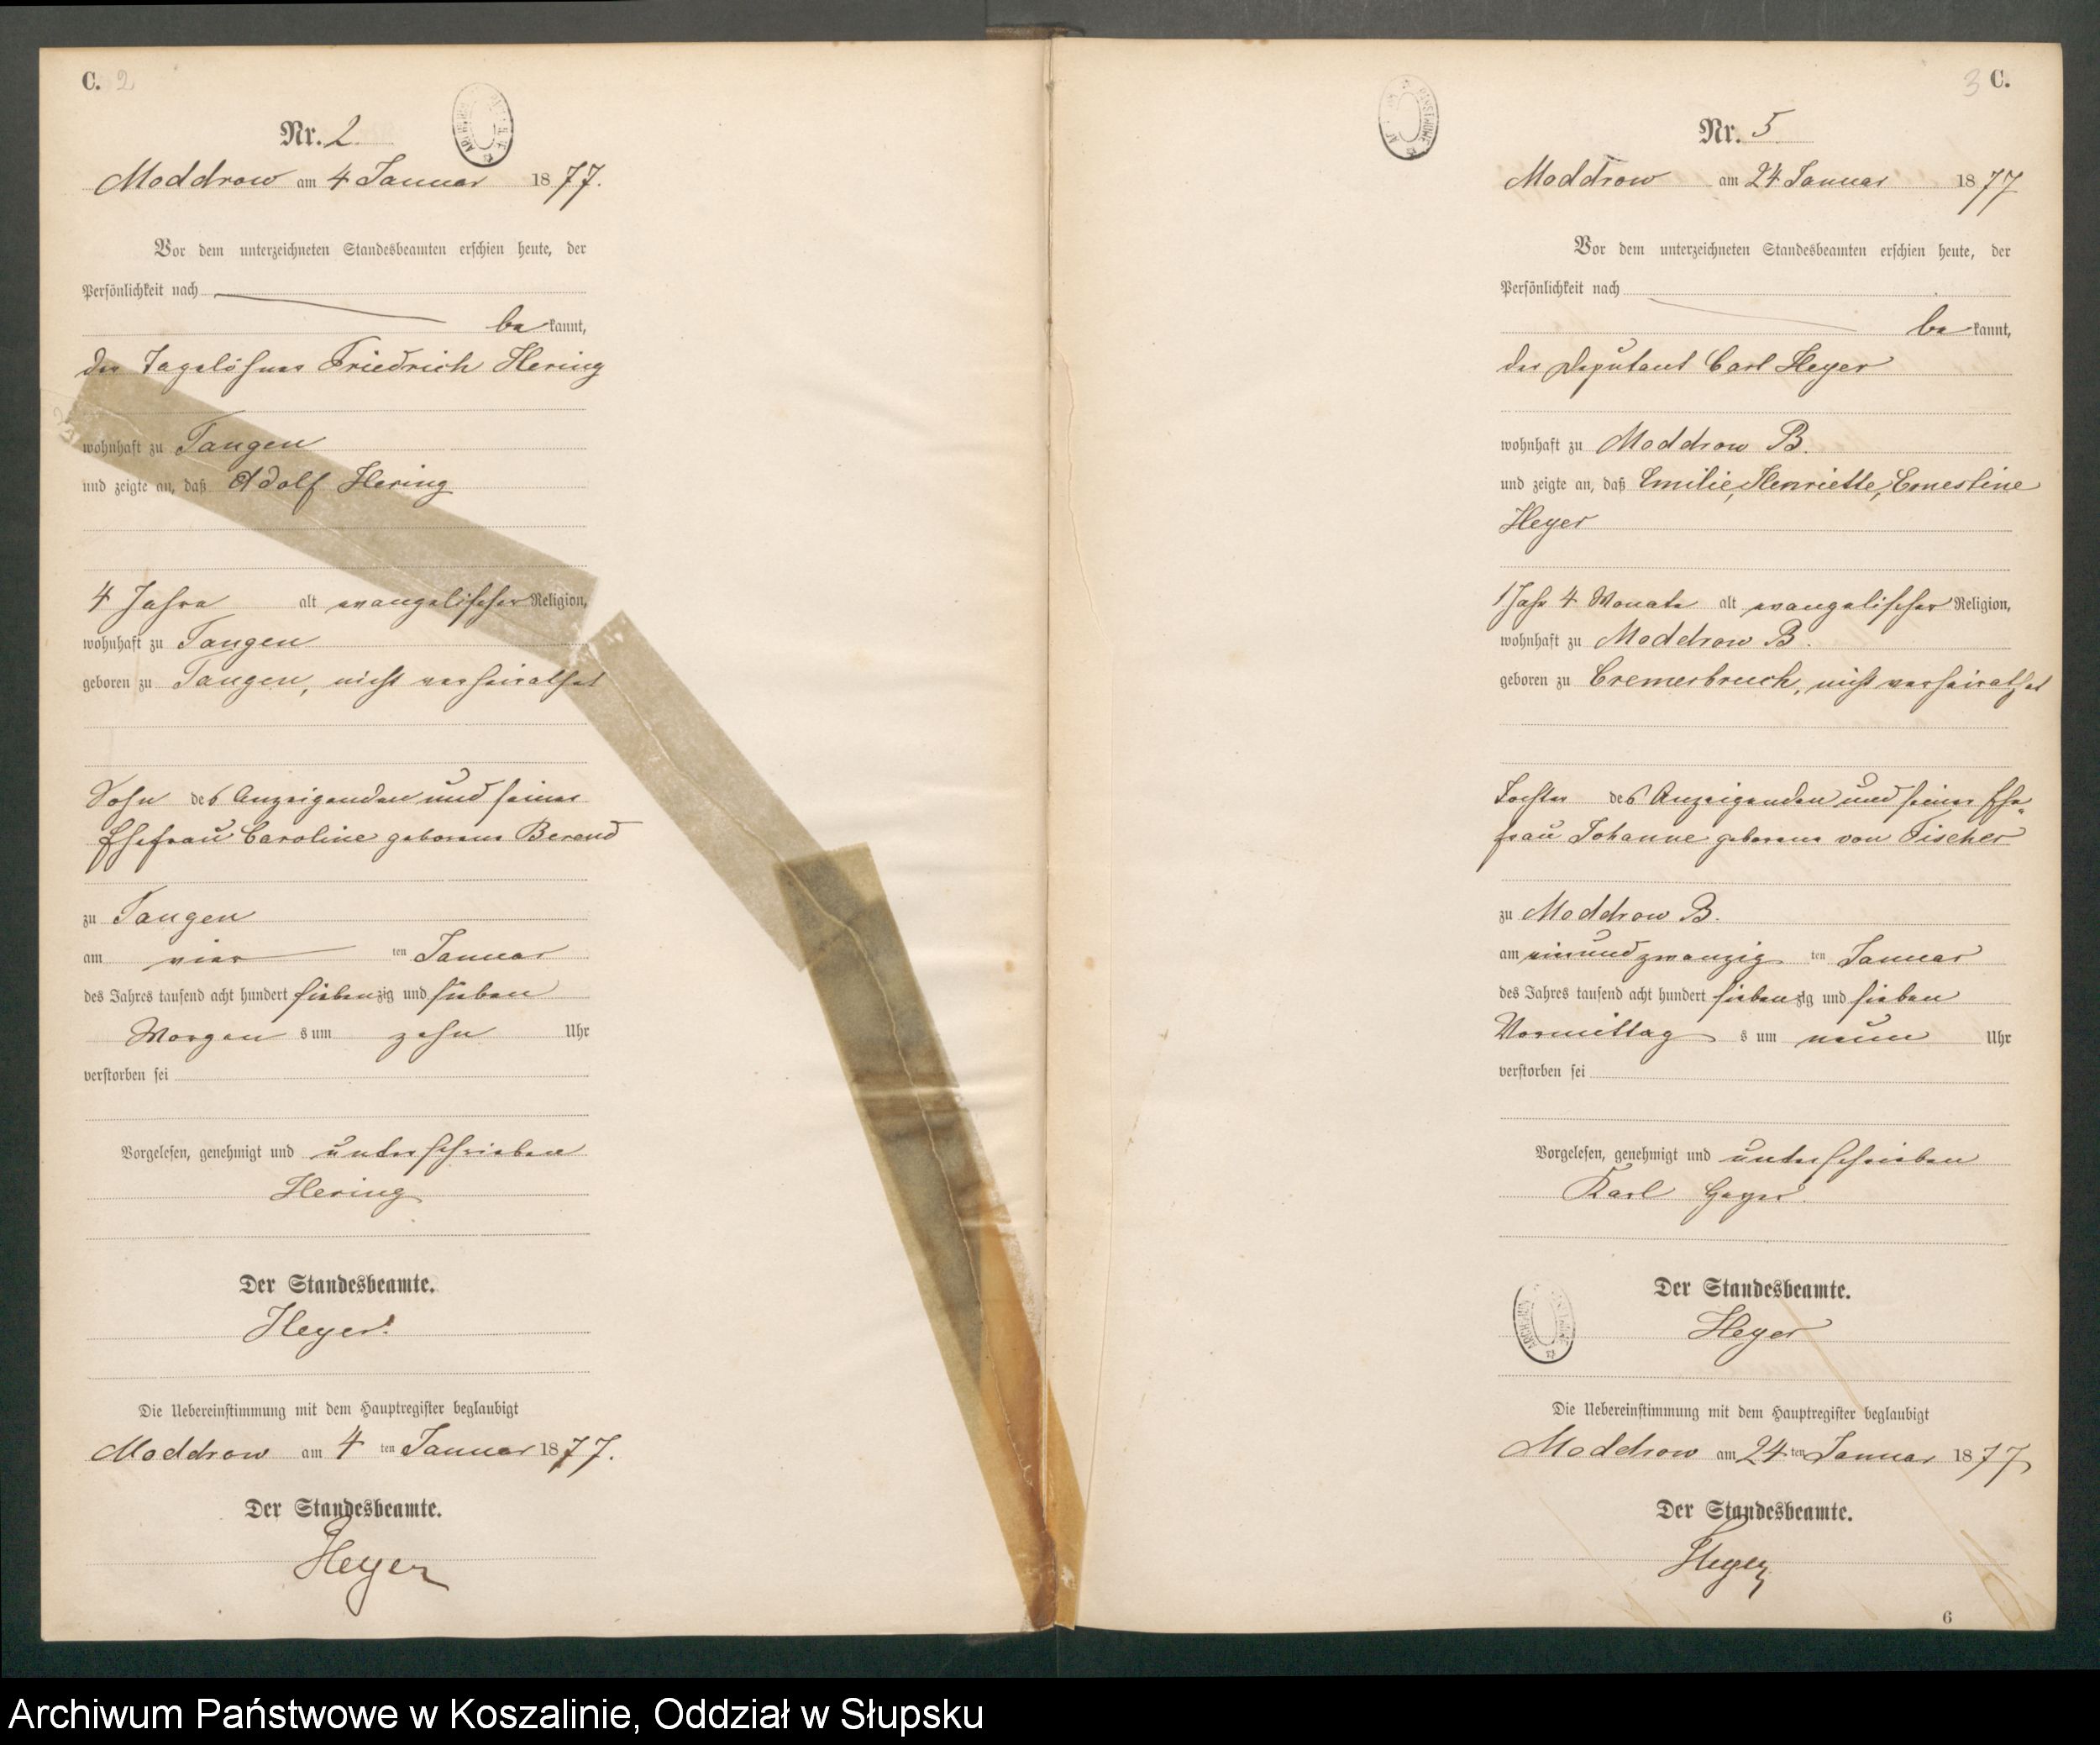 C. 2
Nr. 2.
Moddrow am 4 Januar 1877.
Vor dem unterzeichneten Standesbeamten erschien heute, der
Persönlichkeit nach
be kannt,
der Tagelöhner Friedrich Hering
wohnhaft zu Tangen
und zeigte an, daß Adolf Hering
4 Jahre alt evangelischer Religion,
wohnhaft zu Tangen
geboren zu Tangen, nicht verheirathet
Sohn des Anzeigenden und seiner
Ehefrau Caroline geborene Berend
zu Tangen
am vier ten Januar
des Jahres tausend acht hundert siebenzig und sieben
Morgens um zehn Uhr
verstorben sei
Vorgelesen, genehmigt und unterschrieben
Hering
Der Standesbeamte.
Heyer.
Die Uebereinstimmung mit dem Hauptregister beglaubigt
Moddrow am 4 ten Januar 1877.
Der Standesbeamte.
Heyer
3 C.
Nr. 5.
Moddrow am 24 Januar 1877
Vor dem unterzeichneten Standesbeamten erschien heute, der
Persönlichkeit nach
be kannt,
der Deputant Carl Heyer
wohnhaft zu Moddrow B.
und zeigte an, daß Emilie, Henriette, Ernestine
Heyer
1 Jahr 4 Monate alt evangelischer Religion,
wohnhaft zu Moddrow B.
geboren zu Cremerbruch, nicht verheirathet
Tochter des Anzeigenden und seiner Ehe-
frau Johanne geborene von Fischer
zu Moddrow B.
am einundzwanzig ten Januar
des Jahres tausend acht hundert siebenzig und sieben
Vormittags um neun Uhr
verstorben sei
Vorgelesen, genehmigt und unterschrieben
Karl Heyer.
Der Standesbeamte.
Heyer
Die Uebereinstimmung mit dem Hauptregister beglaubigt
Moddrow am 24 ten Januar 1877
Der Standesbeamte.
Heyer
6
Archiwum Państwowe w Koszalinie, Oddział w Słupsku